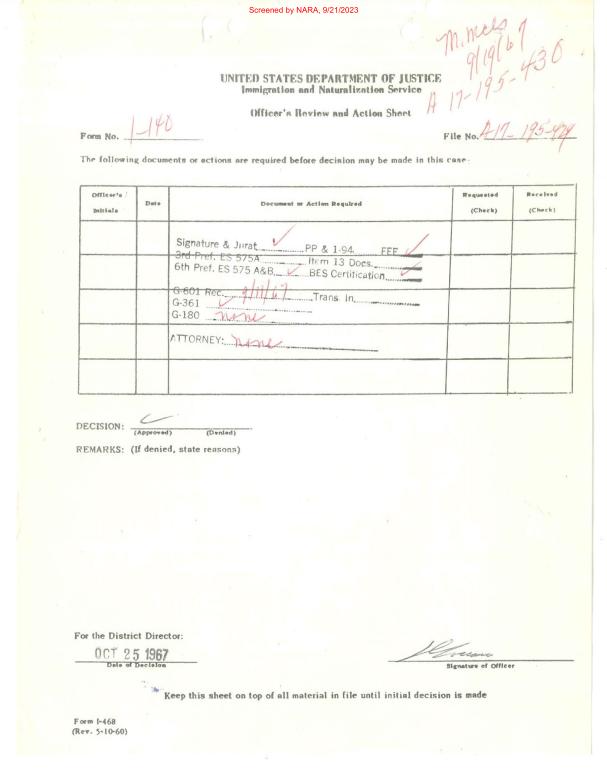 Screened by NARA, 9/21/2023
9/19/67
A 17-195-430
UNITED STATES DEPARTMENT OF JUSTICE
Immigration and Naturalization Service
Officer's Review and Action Sheet
Form No. I-140
File No. A17-195-429
The following documents or actions are required before decision may be made in this case:
Officer's Initials
Date
Document or Action Required
Requested (Check)
Received (Check)
Signature & Jurat ✓ PP & 1-94 FFF ✓
3rd Pref. ES 575A Item 13 Docs.
6th Pref. ES 575 A&B ✓ BES Certification ✓
G-601 Rec. 9/11/67 Trans In
G-361 ✓
G-180 none
ATTORNEY: none
DECISION: ✓
(Approved) (Denied)
REMARKS: (If denied, state reasons)
For the District Director:
OCT 25 1967
Date of Decision
Signature of Officer
Keep this sheet on top of all material in file until initial decision is made
Form I-468
(Rev. 5-10-60)